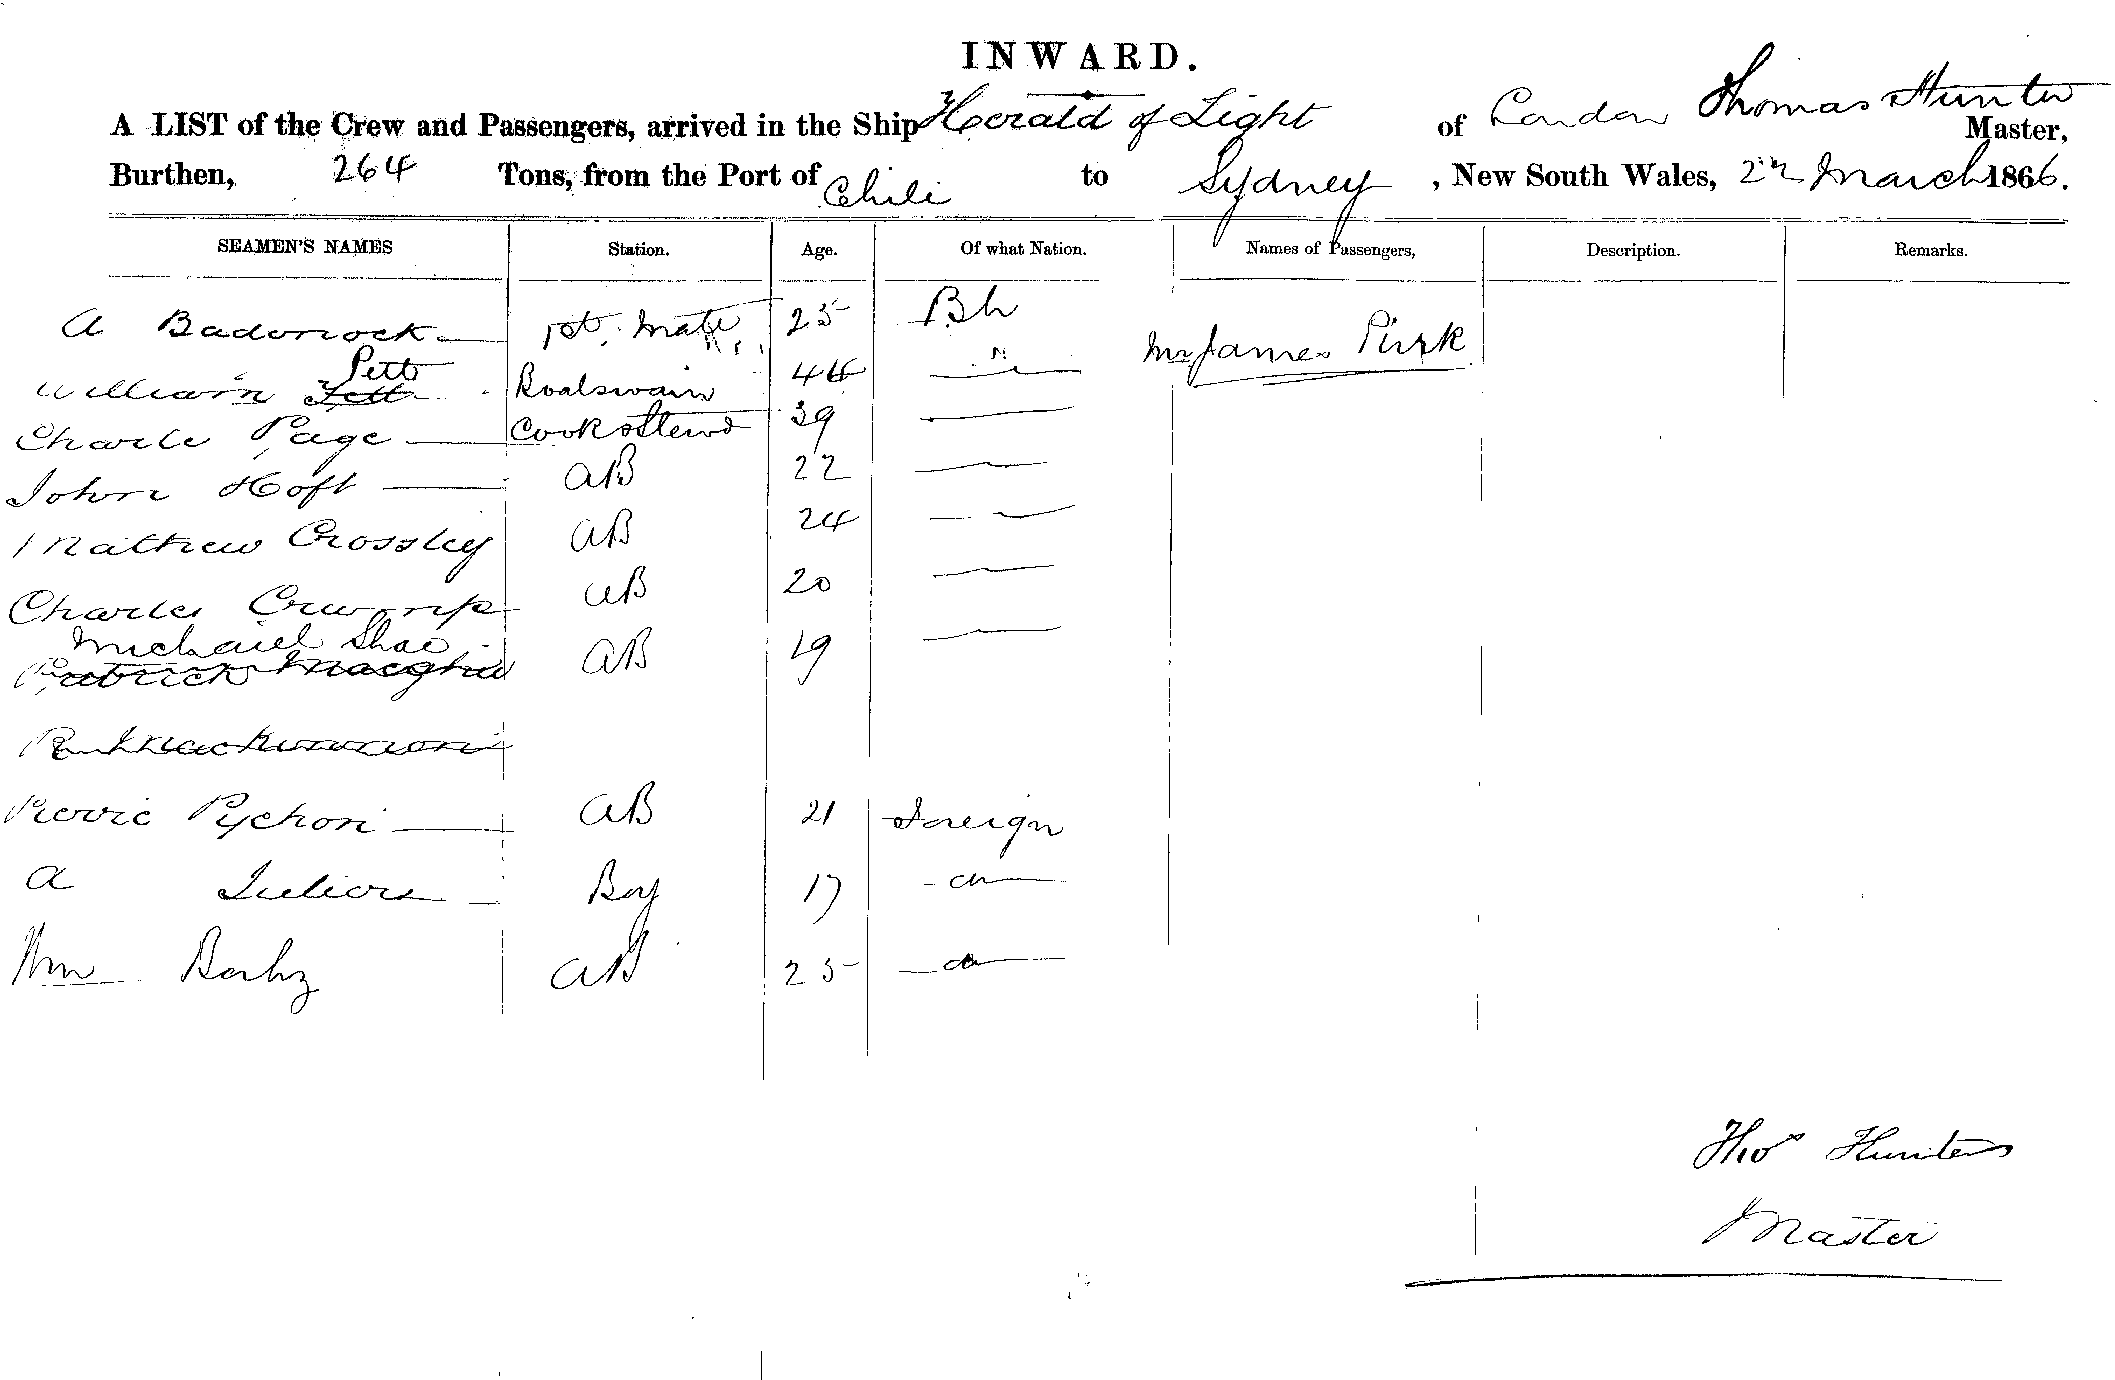 INWARD.
A LIST of the Crew and Passengers, arrived in the Ship Herald of Light of London Thomas Hunter Master,
Burthen, 264 Tons, from the Port of Chili to Sydney, New South Wales, March 1866.
SEAMEN'S NAMES Station. Age. Of what Nation. Names of Passengers, Description. Remarks.
A Badonock 1st. Mate 25 Bh Mr James Pirrk
William Tett Pett Boatswain 44
Charle Page Cook & Stewd 39
John Hoft AB 22
Mathew Crossley AB 24
Charles Crump AB 20
Michaiel Shae
Patrick AB 19
Pychon AB 21 Foreign
A Boy 17
Wm AB 25
Thos Hunter
Master